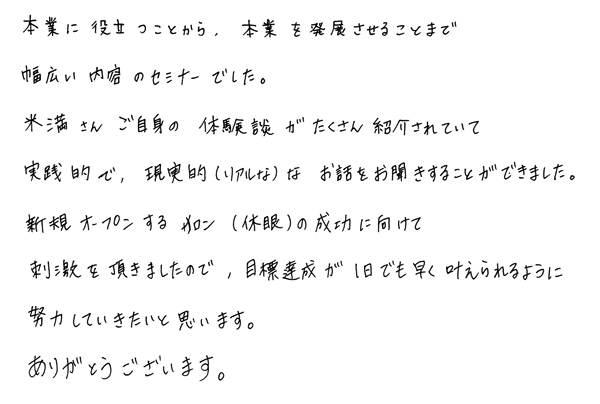 本業に役立つことから、本業を発展させることまで
幅広い内容のセミナーでした。
米満さんご自身の体験談がたくさん紹介されていて
実践的で、現実的(リアルな)な お話をお聞きすることができました。
新規オープンするサロン(休眠)の成功に向けて
刺激を頂きましたので、目標達成が1日でも早く叶えられるように
努力していきたいと思います。
ありがとうございます。